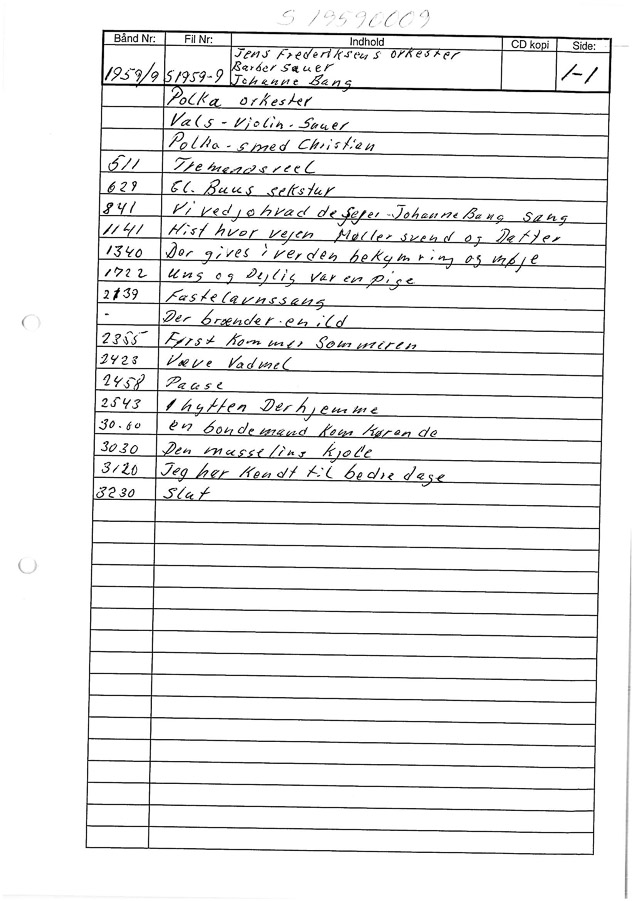 S 19590009
Bånd Nr: Fil Nr: Indhold CD kopi Side:
1959/9 S1959-9 Jens Frederiksens orkester 1-1
Barber Sauer
Johanne Bang
Polka orkester
Vals - Violin - Sauer
Polka - smed Christian
511 Tremandsreel
629 Gl. Buus sekstur
841 Vi ved jo hvad de seger - Johanne Bang sang
1141 Hist hvor vejen Møllersvend og Datter
1340 Der gives i verden bekymring og møje
1722 Ung og Dejlig var en pige
2139 Fastelavnssang
- Der brænder en ild
2355 Først Kommer Sommeren
2423 Væve Vadmel
2458 Pause
2543 I hytten Derhjemme
30.00 en bondemand kom kørende
3030 Den musselins kjole
3120 Jeg har Kendt til bedre dage
3230 Slut